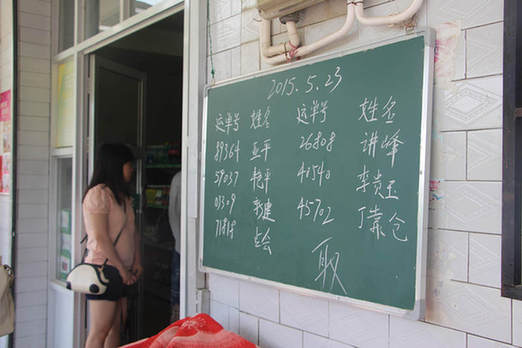 2015.5.23
运单号 姓名 运单号 姓名
89364 亚平 26808 讲峰
59037 艳平 41540 李贵玉
0309 新建 45702 丁霖仓
71818 占会
取